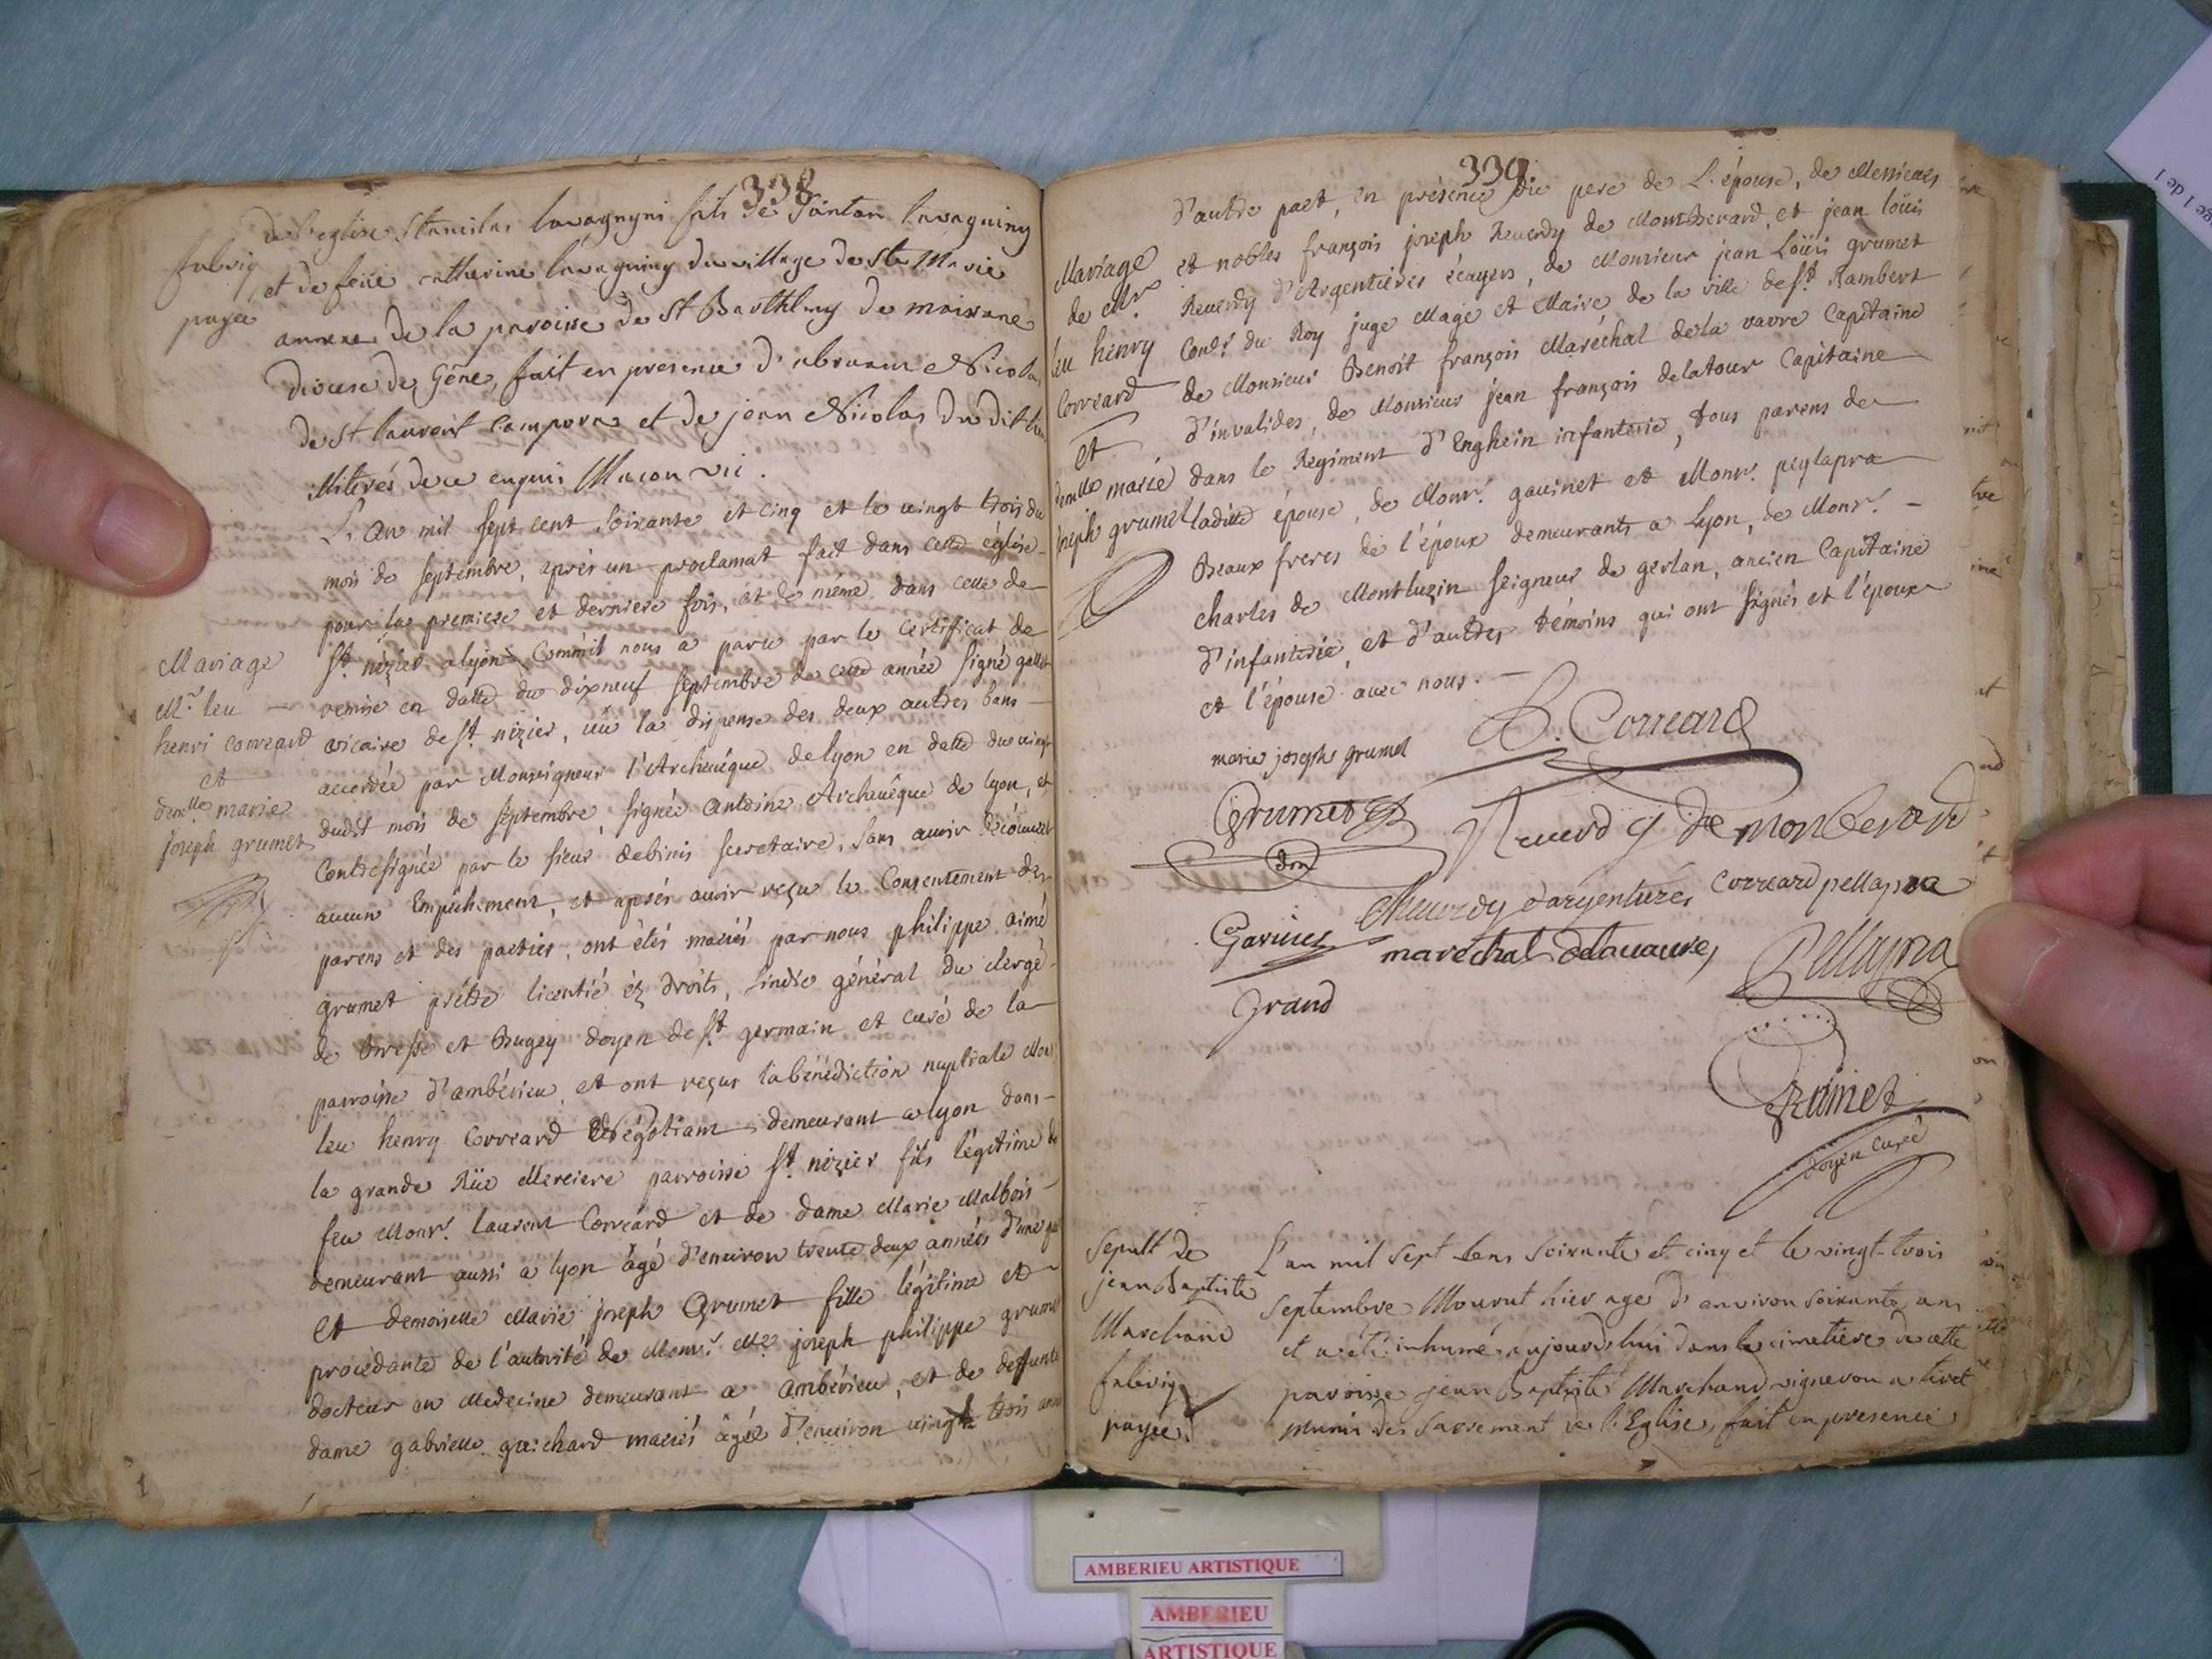 338
de l'eglise Stanislas lavagnyni fils de Santan lavaguiny
fabriq
et de feüe catherine lavaguiny du village de Ste Marie
payee
annexe de la paroisse de St Barthlmy de moissane
diocese de Gêne, fait en presence d'abraam Nicolas
de St laurent Campora et de jean Nicolas du dit lieu
illiterés de ce enquis Maconvii.
L'an mil sept cent soixante et cinq et le vingt trois du
mois de septembre, après un proclamat fait dans cette église
pour la premiere et derniere fois, et de même dans celle de
Mariage
St. nizier a lyon, Comm'il nous a paru par le Certificat de
Mr. leu
remise en datte du dixneuf septembre de cette année signé
henri correard
vicaire de St. nizier, vû la dispense des deux autres bans
et
accordée par Monseigneur l'Archevêque de lyon en datte du vingt
demlle marie
dudit mois de septembre signée Antoine Archevêque de lyon, et
joseph grumet
Contresignée par le sieur debinis secretaire, sans avoir découvert
aucun Empêchement, et après avoir reçu le Consentement des
parens et des parties, ont étés mariés par nous philippe aimé
grumet prêtre licentié èz droits, sindic général du clergé
de Bresse et Bugey doyen de St. germain et curé de la
parroisse d'ambérieu, et ont reçus la bénédiction nuptiale Monr
leu henry Correard Négotiant demeurant a lyon dans
la grande Rüe Merciere parroisse St. nizier fils légitime de
feu Monr. laurent Correard et de dame Marie Malbois
demeurant aussi a lyon âgé d'environ trente deux années d'une part
et demoiselle Marie joseph Grumet fille légitime et
procedante de l'autorité de Monr. Me joseph philippe grumet
docteur en Medecine demeurant a Ambérieu, et de deffunte
dame gabrielle guichard mariés âgée d'environ vingt trois ans
339
d'autre part, en présence du pere de L'épouse, de Messieurs
Mariage
et nobles françois joseph Reverdy de MontBerard, et jean loüis
de Mr.
Reverdy d'Argentieres écuyers, de Monsieur jean Loüis grumet
leu henry
Coner. du Roy juge Mage et Maire de la ville de St. Rambert
Correard
de Monsieur Benoit françois Maréchal dela vavre Capitaine
et
d'invalides, de Monsieur jean françois delatour Capitaine
demlle marie
dans le Régiment d'Enghein infanterie, tous parens de
joseph grumet
laditte épouse, de Monr. gavinet et Monr. peylapra
Beaux freres de l'époux demeurants a Lyon, de Monr.
charles de Montluzin seigneur de gerlan, ancien Capitaine
d'infanterie, et d'autres témoins qui ont signés et l'époux
et l'épouse avec nous.
L. Correard
marie joseph grumet
Grumet
Reverdy de monberard
Correard pellapra
Reverdy dargentieres
marechal delavavre
Pellapra
Grand
Grumet
doyen curé
Sepult de
L'an mil sept cens soixante et cinq et le vingt-trois
jean Baptiste
Septembre Mourut hier agé d'environ soixante ans
Marchand
et a été inhumé aujourd'hui dans le cimetiere de cette
fabriq
paroisse jean Baptiste Marchand vigneron a tiret
payee
munis des sacrement de l'Eglise, fait en presence
AMBERIEU ARTISTIQUE
AMBERIEU
ARTISTIQUE